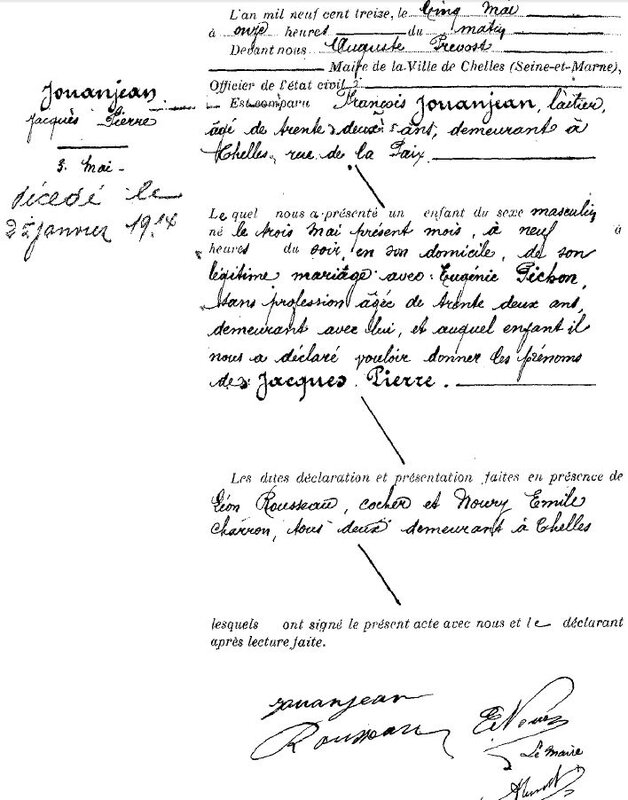 L'an mil neuf cent treize, le Cinq Mai
à onze heures du matin
Devant nous Auguste Prevost
Maire de la Ville de Chelles (Seine-et-Marne),
Officier de l'état civil
Jouanjean
Jacques Pierre
3. Mai
décédé le
22 janvier 1914
Est comparu François Jouanjean, laitier,
âgé de trente deux ans, demeurant à
Chelles, rue de la Paix
Lequel nous a présenté un enfant du sexe masculin
né le trois Mai présent mois, à neuf à
heures du soir, en son domicile, de son
légitime mariage avec Eugénie Pichon,
sans profession âgée de trente deux ans,
demeurant avec lui, et auquel enfant il
nous a déclaré vouloir donner les prénoms
de: Jacques Pierre.
Les dites déclaration et présentation faites en présence de
Léon Rousseau, cocher et Noury Emile
charron, tous deux demeurant à Chelles
lesquels ont signé le présent acte avec nous et le déclarant
après lecture faite.
Jouanjean
Rousseau E Noury
Le Maire